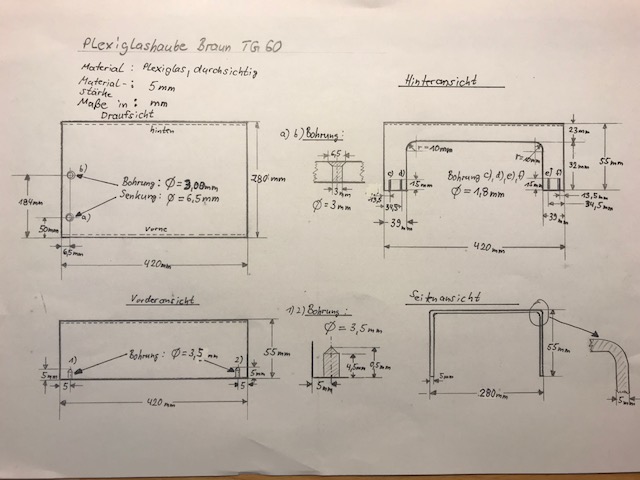 Plexiglashaube Braun TG 60
Material: Plexiglas, durchsichtig
Material-: 5 mm
stärke
Maße in: mm
Draufsicht
hinten
b)
Bohrung: Ø = 3,00mm
Senkung: Ø = 6,5mm
a)
vorne
184mm
50mm
6,5mm
420mm
280mm
a) b) Bohrung:
6,5
3mm
Ø = 3mm
Hinteransicht
r=10mm
r=10mm
23mm
32mm
55mm
c) d)
Bohrung c), d), e), f)
Ø = 1,8mm
e) f)
15mm
15mm
13,5
34,5
39mm
13,5mm
34,5mm
39mm
420mm
Vorderansicht
1)
Bohrung: Ø = 3,5 mm
2)
5mm
5
5
5mm
55mm
420mm
1) 2) Bohrung:
Ø = 3,5mm
5mm
4,5mm
Seitenansicht
5mm
280mm
55mm
5mm